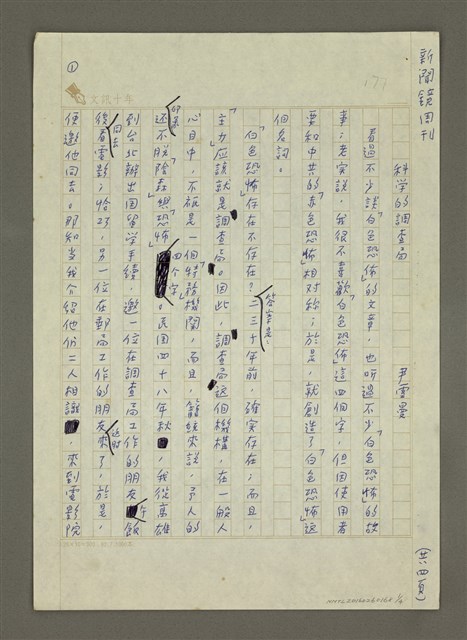 新聞鏡周刊
(共四頁)
171
①
文訊十年
科學的調查局
尹雪曼
看過不少談「白色恐怖」的文章，也聽過不少「白色恐怖」的故
事；老實說，我很不喜歡「白色恐怖」這四個字，但因使用者
要和中共的「赤色恐怖」相对称；於是，就創造了「白色恐怖」這
個名詞。
「白色恐怖」存在不存在？答案是：二三十年前，確实存在；而且，
主力应該就是調查局。因此，調查局这個機構，在一般人
心目中，不祗是一個「特務」機関，而且，籠統來說，予人的
印象還不脫「陰森」「恐怖」四個字。民國四十八年秋，我從高雄
到台北辦出國留学手續，邀一位在調查局工作的朋友午飯
後看電影；恰巧，另一位在郵局工作的朋友这时來了，於是，
便邀他同去。即知当我介紹他份二人相識，來到電影院